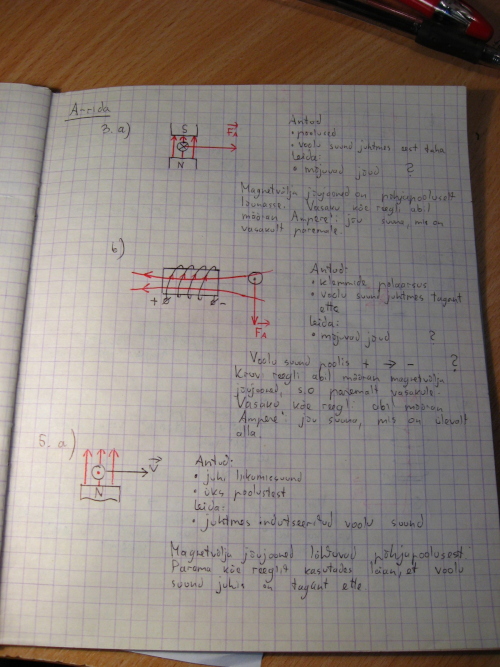 A-rida
3. a)
S
N
F_A
Antud
• poolused
• voolu suund juhtmes eest taha
Leida:
• mõjuvad jõud ?
Magnetvälja jõujooned on põhjapooluselt
lõunasse. Vasaku käe reegli abil
määran Ampere'i jõu suuna, mis on
vasakult paremale
b)
+ -
F_A
Antud:
• klemmide polaarsus
• voolu suund juhtmes tagant
ette
Leida:
• mõjuvad jõud ?
Voolu suund poolis + → - ?
Kruvi reegli abil määran magnetvälja
jõujooned, s.o paremalt vasakule.
Vasaku käe reegli abil määran
Ampere' jõu suuna, mis on ülevalt
alla.
5. a)
N
v
Antud:
• juhi liikumissuund
• üks poolustest
Leida:
• juhtmes indutseeritud voolu suund
Magnetvälja jõujooned lähtuvad põhjapoolusest
Parema käe reeglit kasutades leian, et voolu
suund juhis on tagant ette.